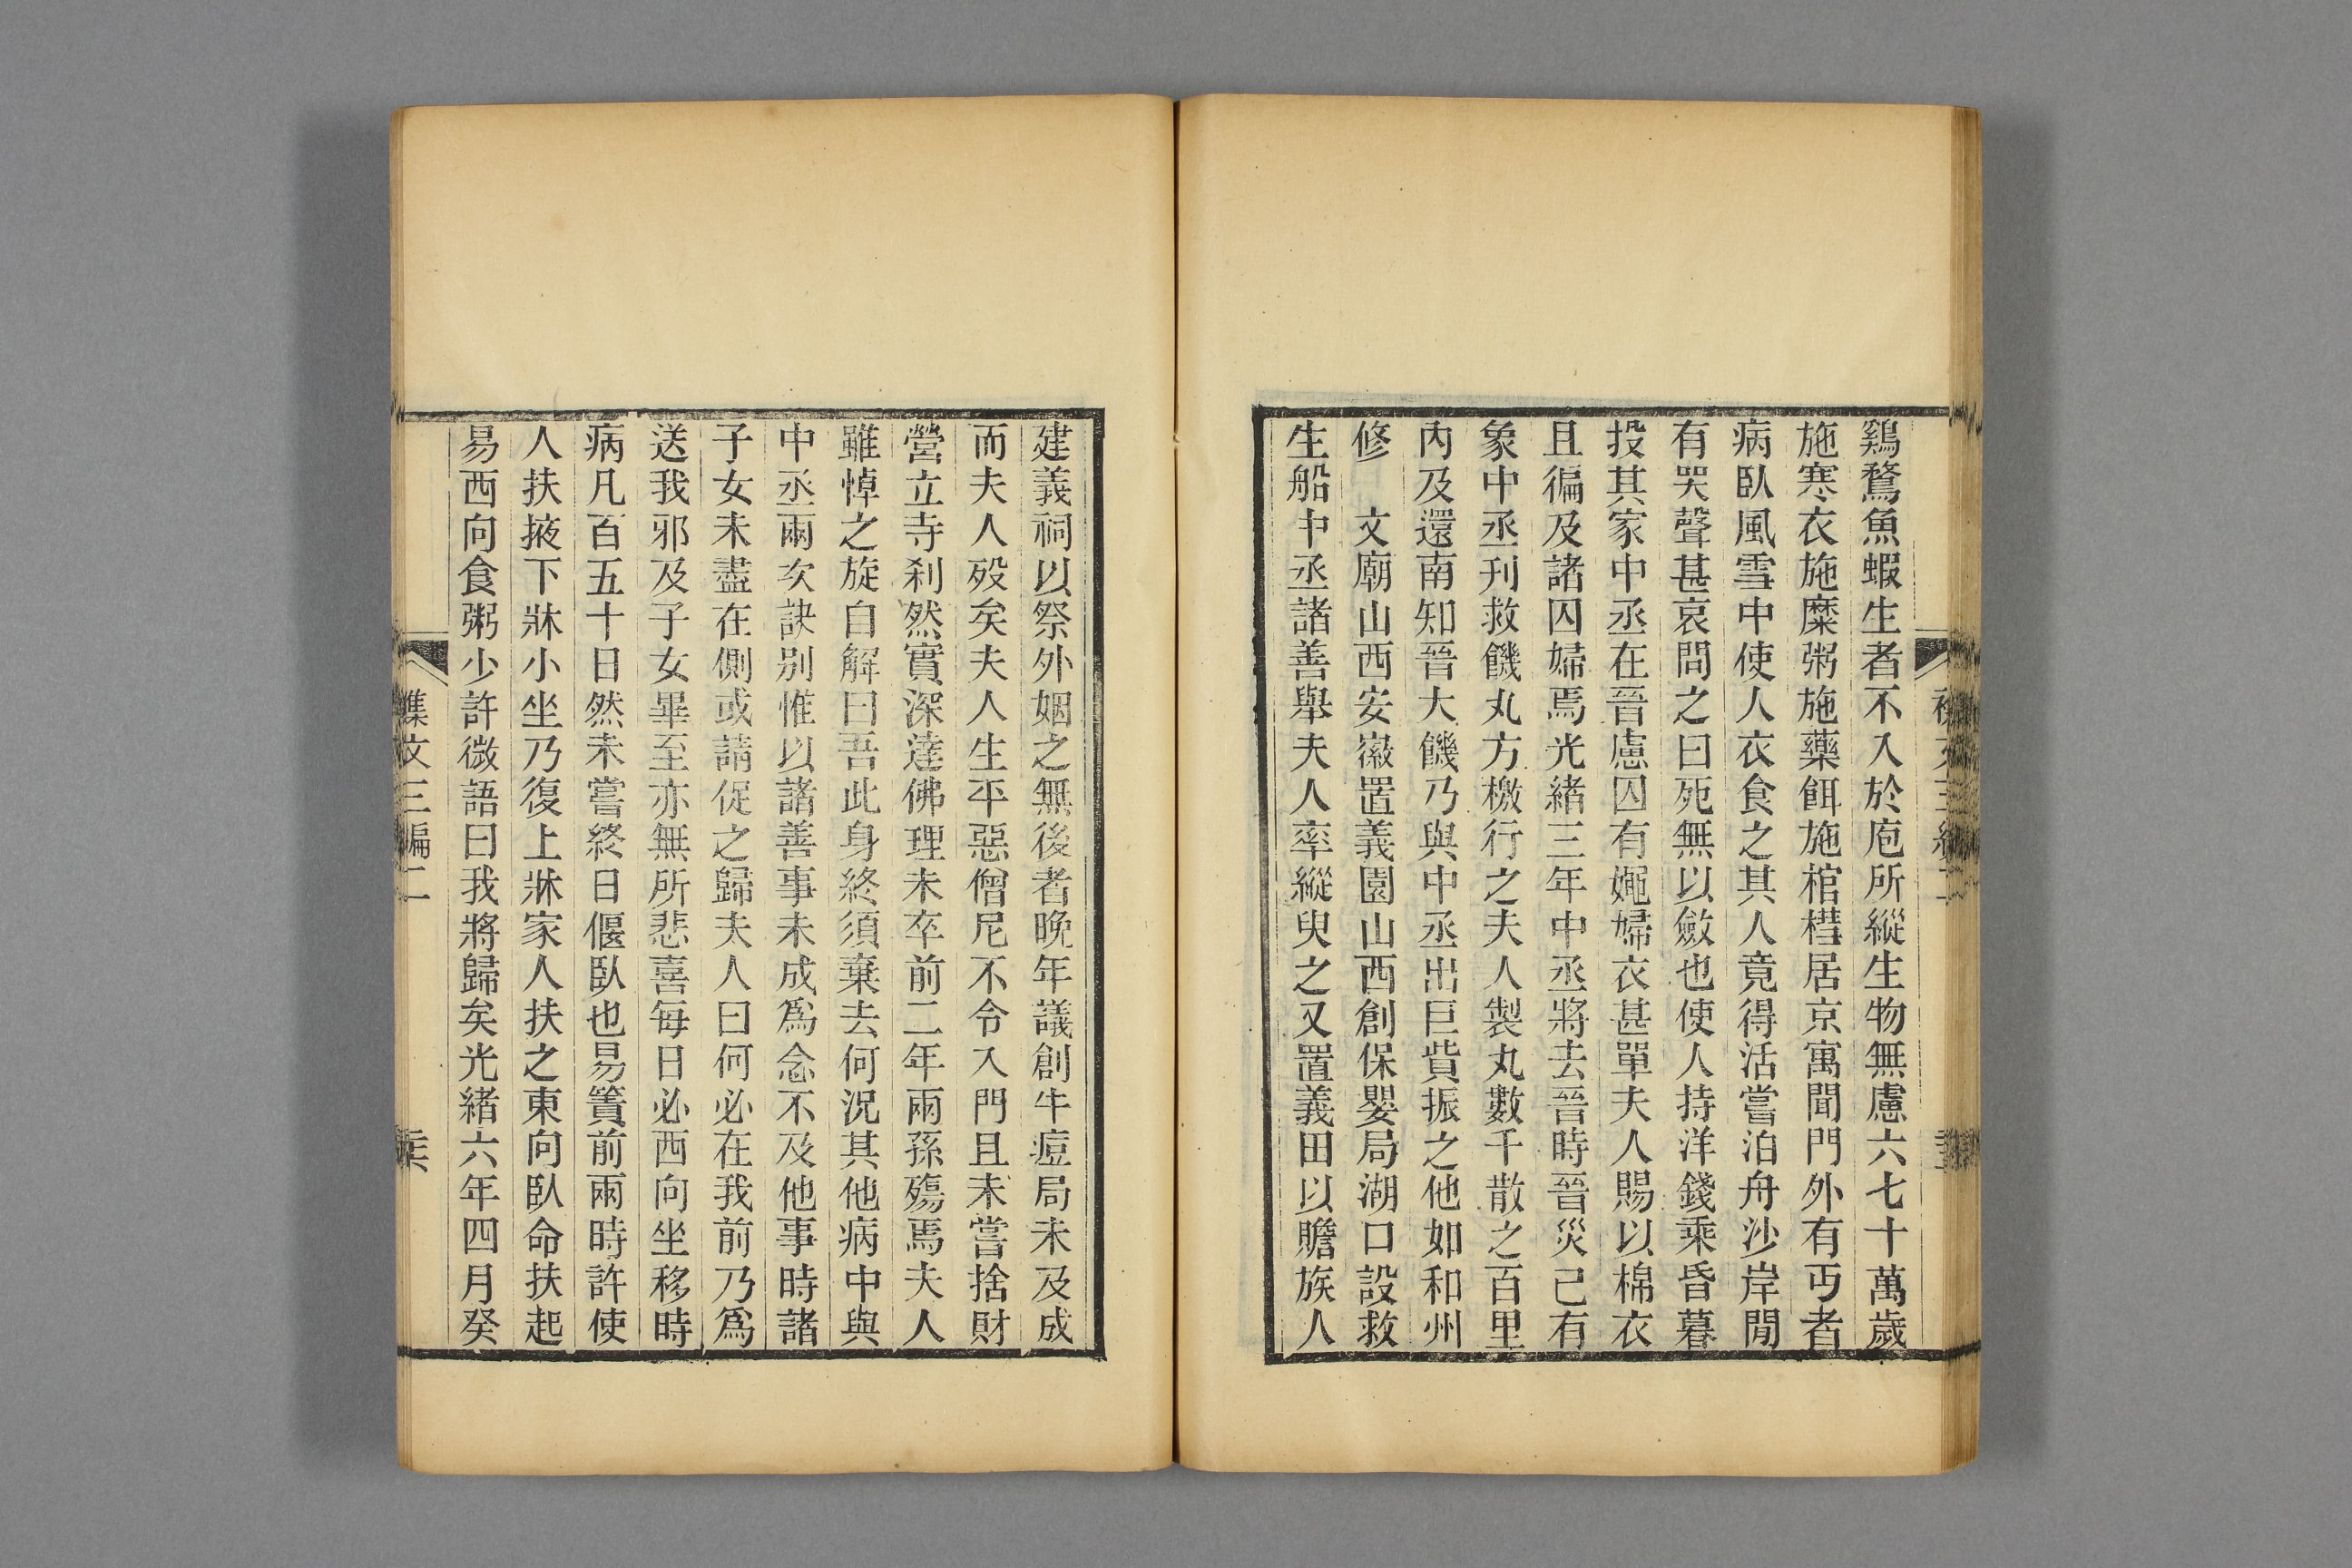 鷄鶩魚蝦生者不入於庖所縱生物無慮六七十萬歲
施寒衣施糜粥施藥餌施棺槥居京寓聞門外有丐者
病臥風雪中使人衣食之其人竟得活嘗泊舟沙岸閒
有哭聲甚哀問之曰死無以斂也使人持洋錢乘昏暮
投其家中丞在晉慮囚有嫠婦衣甚單夫人賜以棉衣
且徧及諸囚婦焉光緒三年中丞將去晉時晉災己有
象中丞刋救饑丸方檄行之夫人製丸數千散之百里
內及還南知晉大饑乃與中丞出巨貲振之他如和州
修　文廟山西安徽置義園山西創保嬰局湖口設救
生船中丞諸善舉夫人率縱臾之又置義田以贍族人
建義祠以祭外姻之無後者晚年議創牛痘局未及成
而夫人歿矣夫人生平惡僧尼不令入門且未嘗捨財
營立寺刹然實深達佛理未卒前二年兩孫殤焉夫人
雖悼之旋自解曰吾此身終須棄去何況其他病中與
中丞兩次訣別惟以諸善事未成爲念不及他事時諸
子女未盡在側或請促之歸夫人曰何必在我前乃爲
送我邪及子女畢至亦無所悲喜每日必西向坐移時
病凡百五十日然未嘗終日偃臥也易簀前兩時許使
人扶掖下牀小坐乃復上牀家人扶之東向臥命扶起
易西向食粥少許微語曰我將歸矣光緒六年四月癸
文三編二